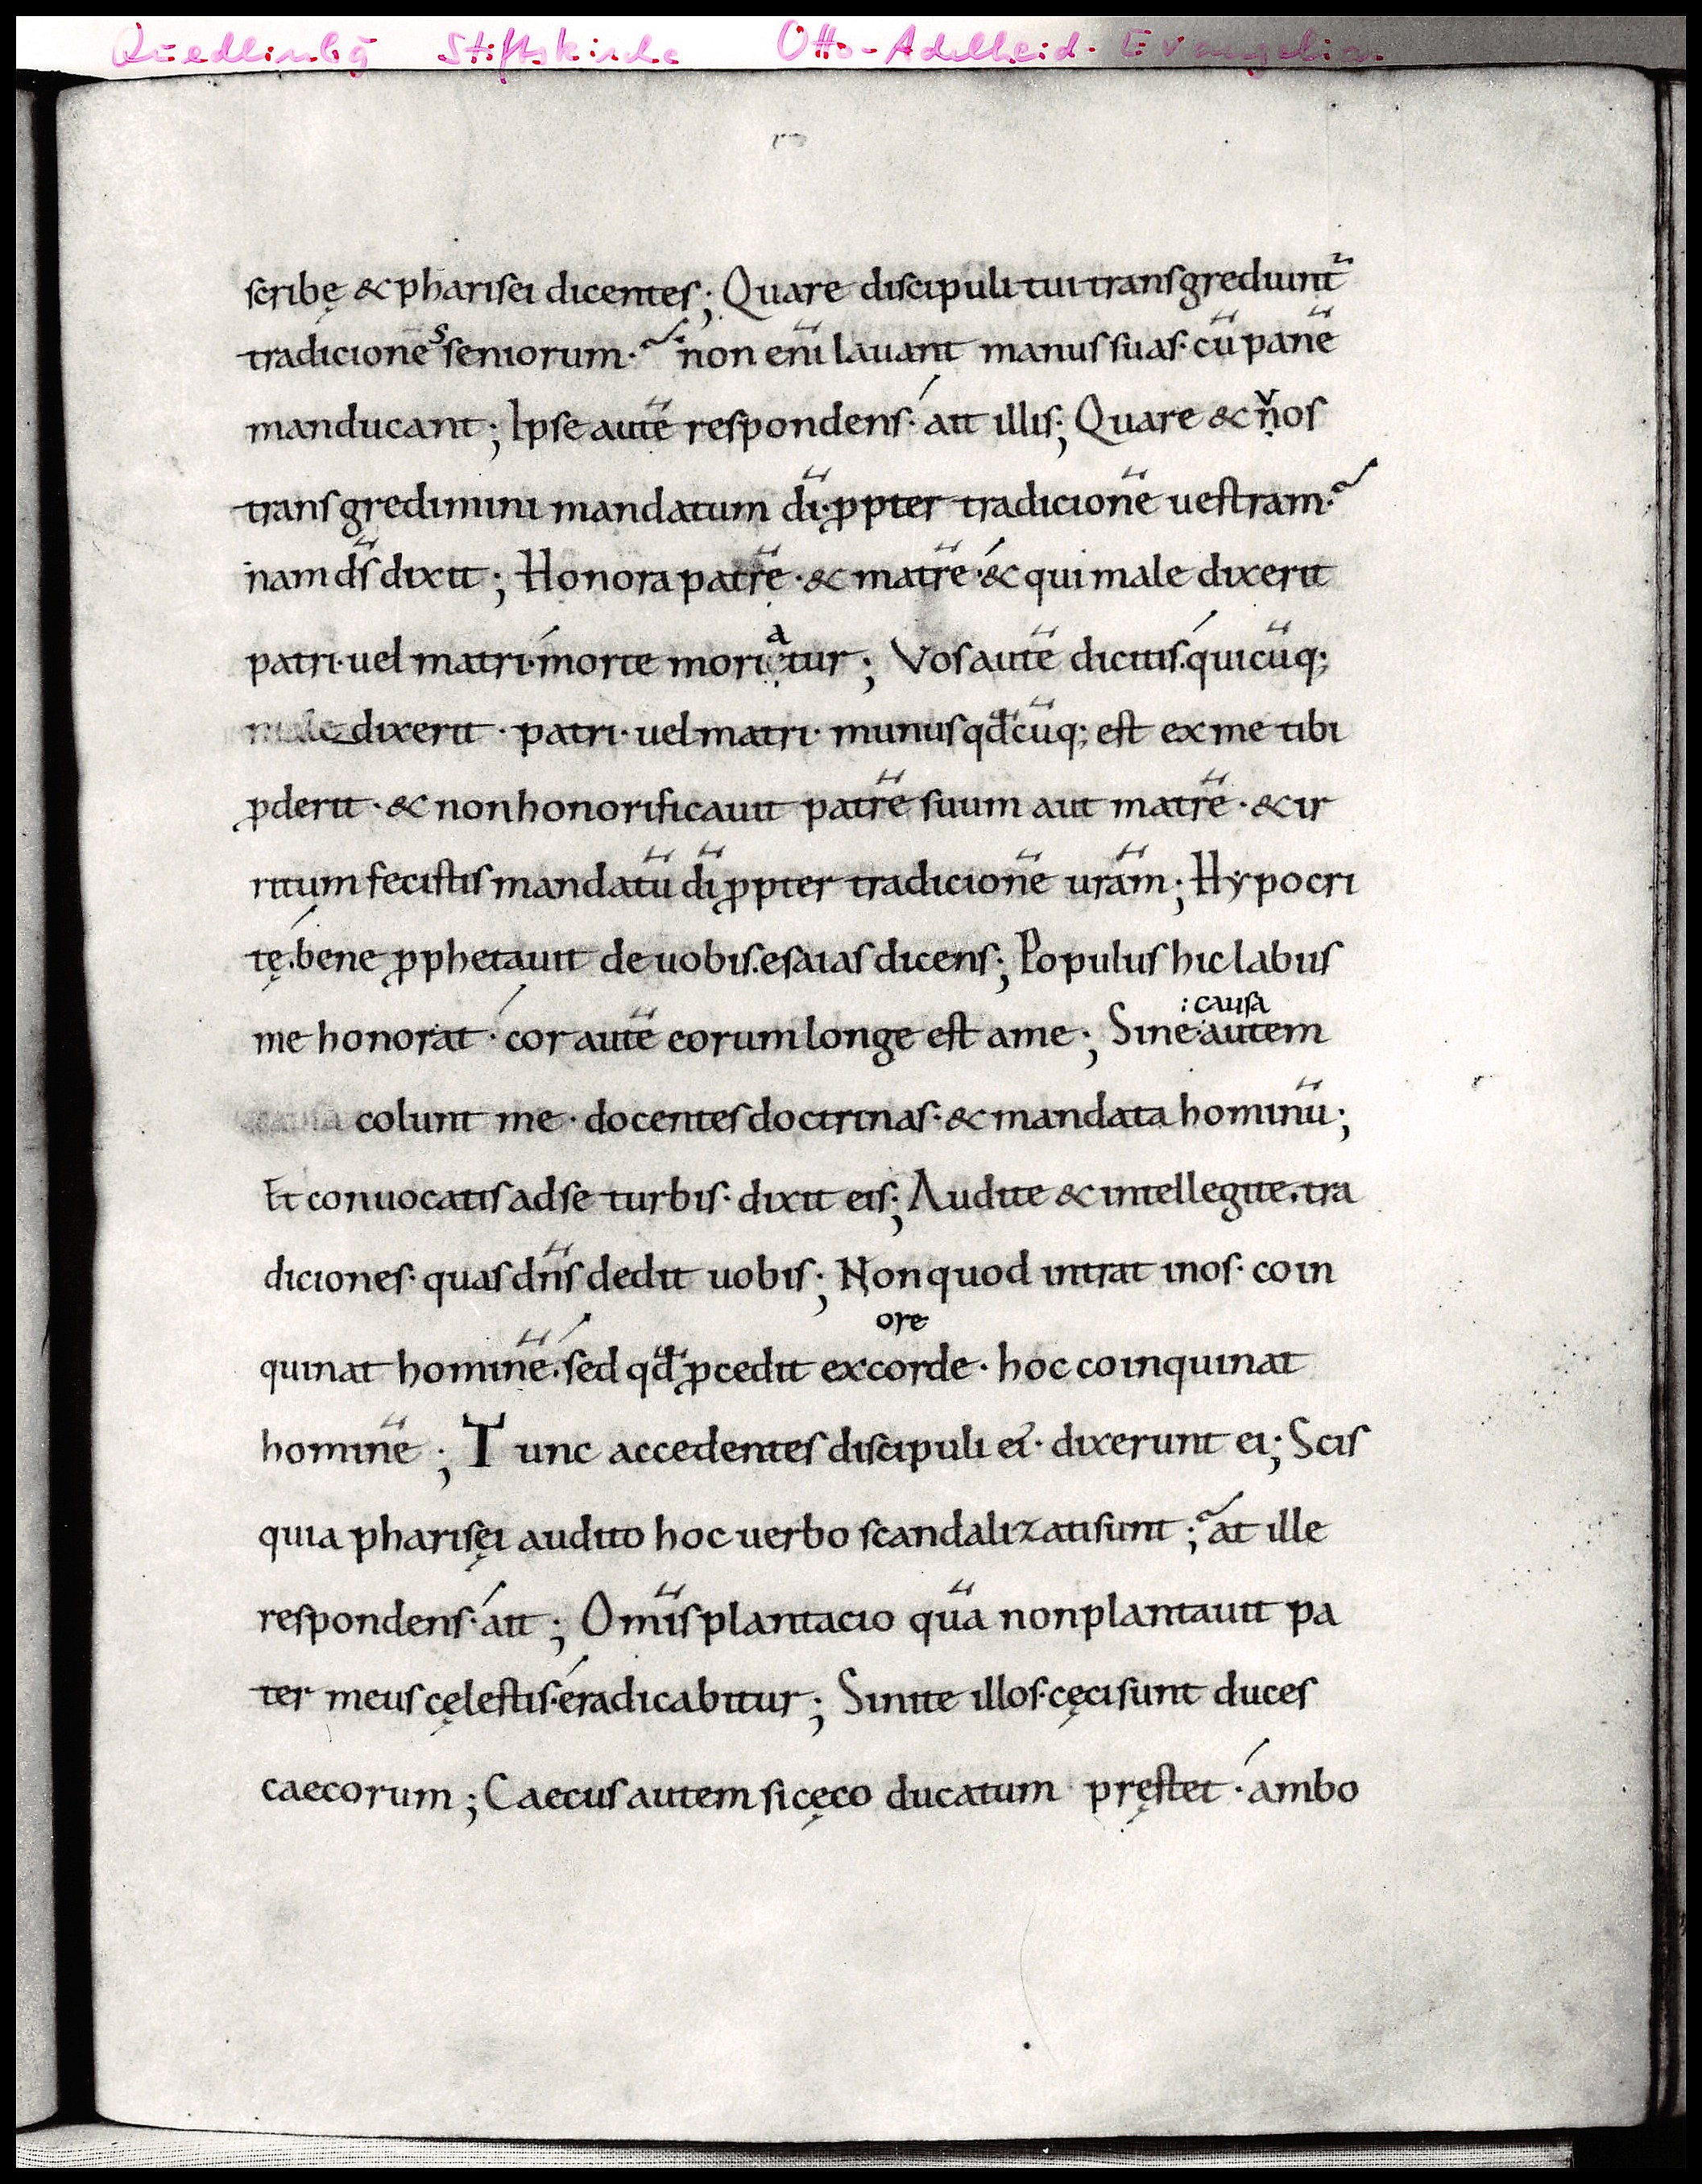 Quedlinbg Stiftskirche Otto-Adelheid-Evangeliar
scribę & pharisei dicentes; Quare discipuli tui transgrediunt᷑
tradicionēˢ seniorum· non enī lauant manus suas· cū panē
manducant; Ipse autē respondens· ait illis; Quare & ṇͮos
transgredimini mandatum dī· ꝓpter tradicionē uestram·
nam dˉs dixit; Honora patrē· & matrē· & qui male dixerit
patri· uel matri· morte moriẹͣtur; Vos autē dicitis· quicūq;
male dixerit· patri· uel matri· munus qđcūq; est ex me tibi
ꝓderit· & non honorificauit patrē suum aut matrē· & ir
ritum fecistis mandatū dī ꝓpter tradicionē urām; Hypocri
tę· bene ꝓphetauit de uobis· esaias dicens; Populus hic labiis
me honorat· cor autē eorum longe est a me; Sine· autem
: causa
causa colunt me· docentes doctrinas· & mandata hominū;
Et conuocatis ad se turbis· dixit eis; Audite & intellegite· tra
diciones· quas dn̄s dedit uobis; Non quod intrat in os· coin
ore
quinat hominē· sed qđ ꝓcedit ex corde· hoc coinquinat
hominē; Tunc accedentes discipuli ei᾽· dixerunt ei; Scis
quia pharisęi audito hoc uerbo scandalizati sunt; at ille
respondens· ait; Om̄is plantacio quā non plantauit pa
ter meus cęlestis· eradicabitur; Sinite illos· cęci sunt duces
caecorum; Caecus autem si cęco ducatum pręstet· ambo